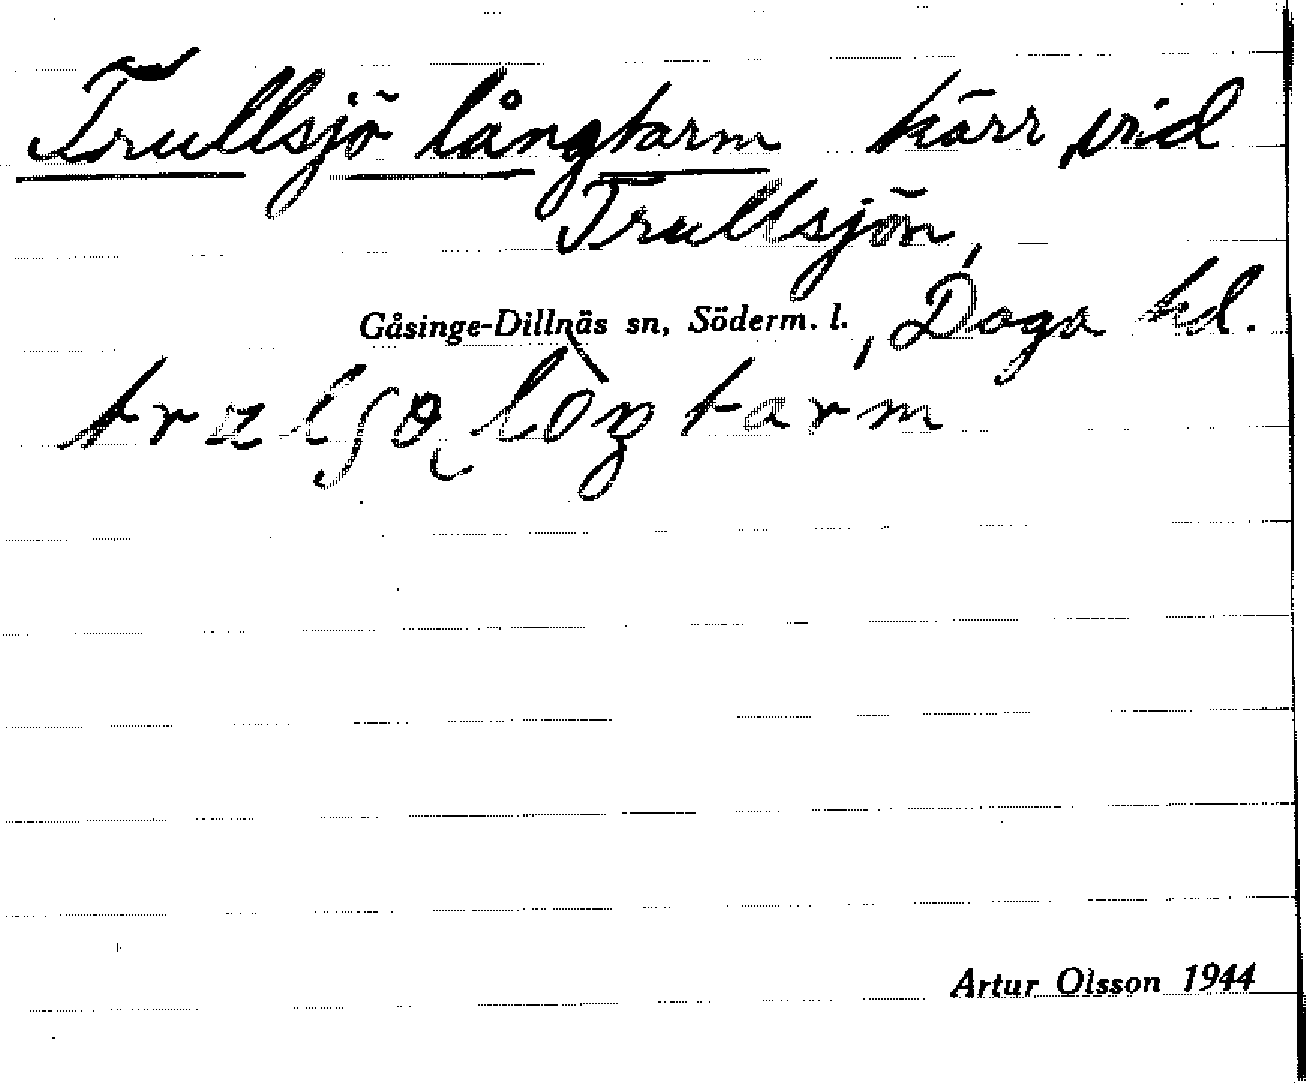 Trullsjö långtarm kärr vid
Trullsjön,
Gåsinge-Dillnäs sn, Söderm. l., Daga hd.
Artur Olsson 1944